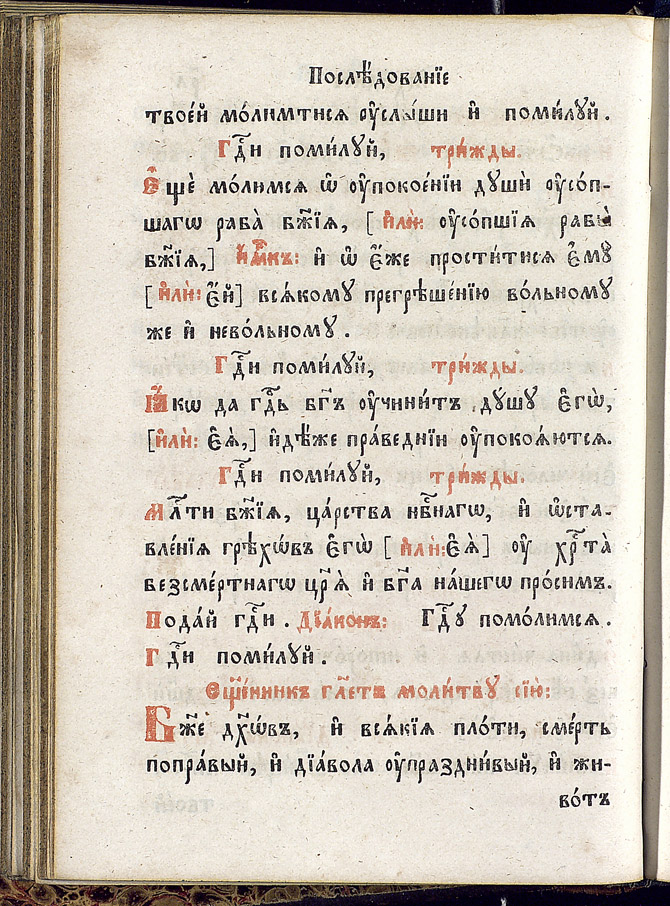 Послѣ́дованїе
твоей мо́лимтися ᲂу҆слы́ши и҆ поми́лꙋй.
Гдⷭ҇и поми́лꙋй, три́жды.
Є҆щѐ мо́лимся ѡ҆ ᲂу҆поко́енїи дꙋшѝ ᲂу҆со́п-
шагѡ раба̀ бж҃їѧ, [и҆лѝ: ᲂу҆со́пшїѧ рабы̀
бж҃їѧ,] и҆м҃къ: и҆ ѡ҆ є҆́же прости́тися є҆мꙋ̀
[и҆лѝ: є҆́й] всѧ́комꙋ прегрѣше́нїю во́льномꙋ
же и҆ нево́льномꙋ.
Гдⷭ҇и поми́лꙋй, три́жды.
Ꙗ҆́кѡ да гдⷭ҇ь бг҃ъ ᲂу҆чини́тъ дꙋ́шꙋ є҆гѡ̀,
[и҆лѝ: є҆ѧ̀,] и҆дѣ́же пра́веднїи ᲂу҆покоѧ́ютсѧ.
Гдⷭ҇и поми́лꙋй, три́жды.
Млⷭ҇ти бж҃їѧ, ца́рства нбⷭ҇нагѡ, и҆ ѡ҆ста-
вле́нїѧ грѣхѡ́въ є҆гѡ̀ [и҆лѝ: є҆ѧ̀] ᲂу҆ хрⷭ҇та̀
безсме́ртнагѡ цр҃ѧ̀ и҆ бг҃а на́шегѡ про́симъ.
Пода́й гдⷭ҇и. Дїа́конъ: Гдⷭ҇ꙋ помо́лимсѧ.
Гдⷭ҇и поми́лꙋй.
Сщ҃е́нникъ гл҃етъ моли́твꙋ сїю̀:
Бж҃е дх҃ѡ́въ, и҆ всѧ́кїѧ пло́ти, сме́рть
попра́вый, и҆ дїа́вола ᲂу҆праздни́вый, и҆ жи-
во́тъ